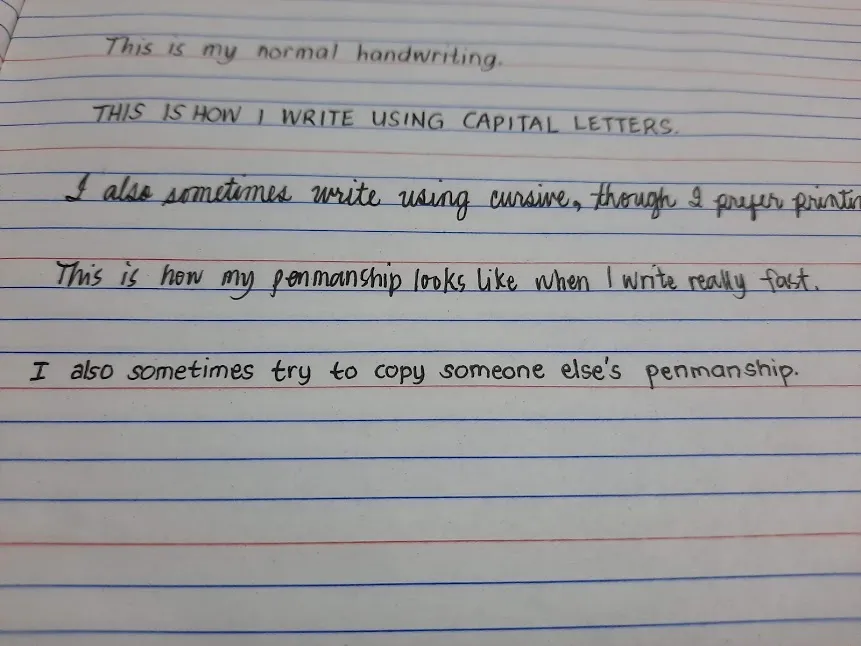 This is my normal handwriting.
THIS IS HOW I WRITE USING CAPITAL LETTERS.
I also sometimes write using cursive, though I prefer printin
This is how my penmanship looks like when I write really fast.
I also sometimes try to copy someone else's penmanship.